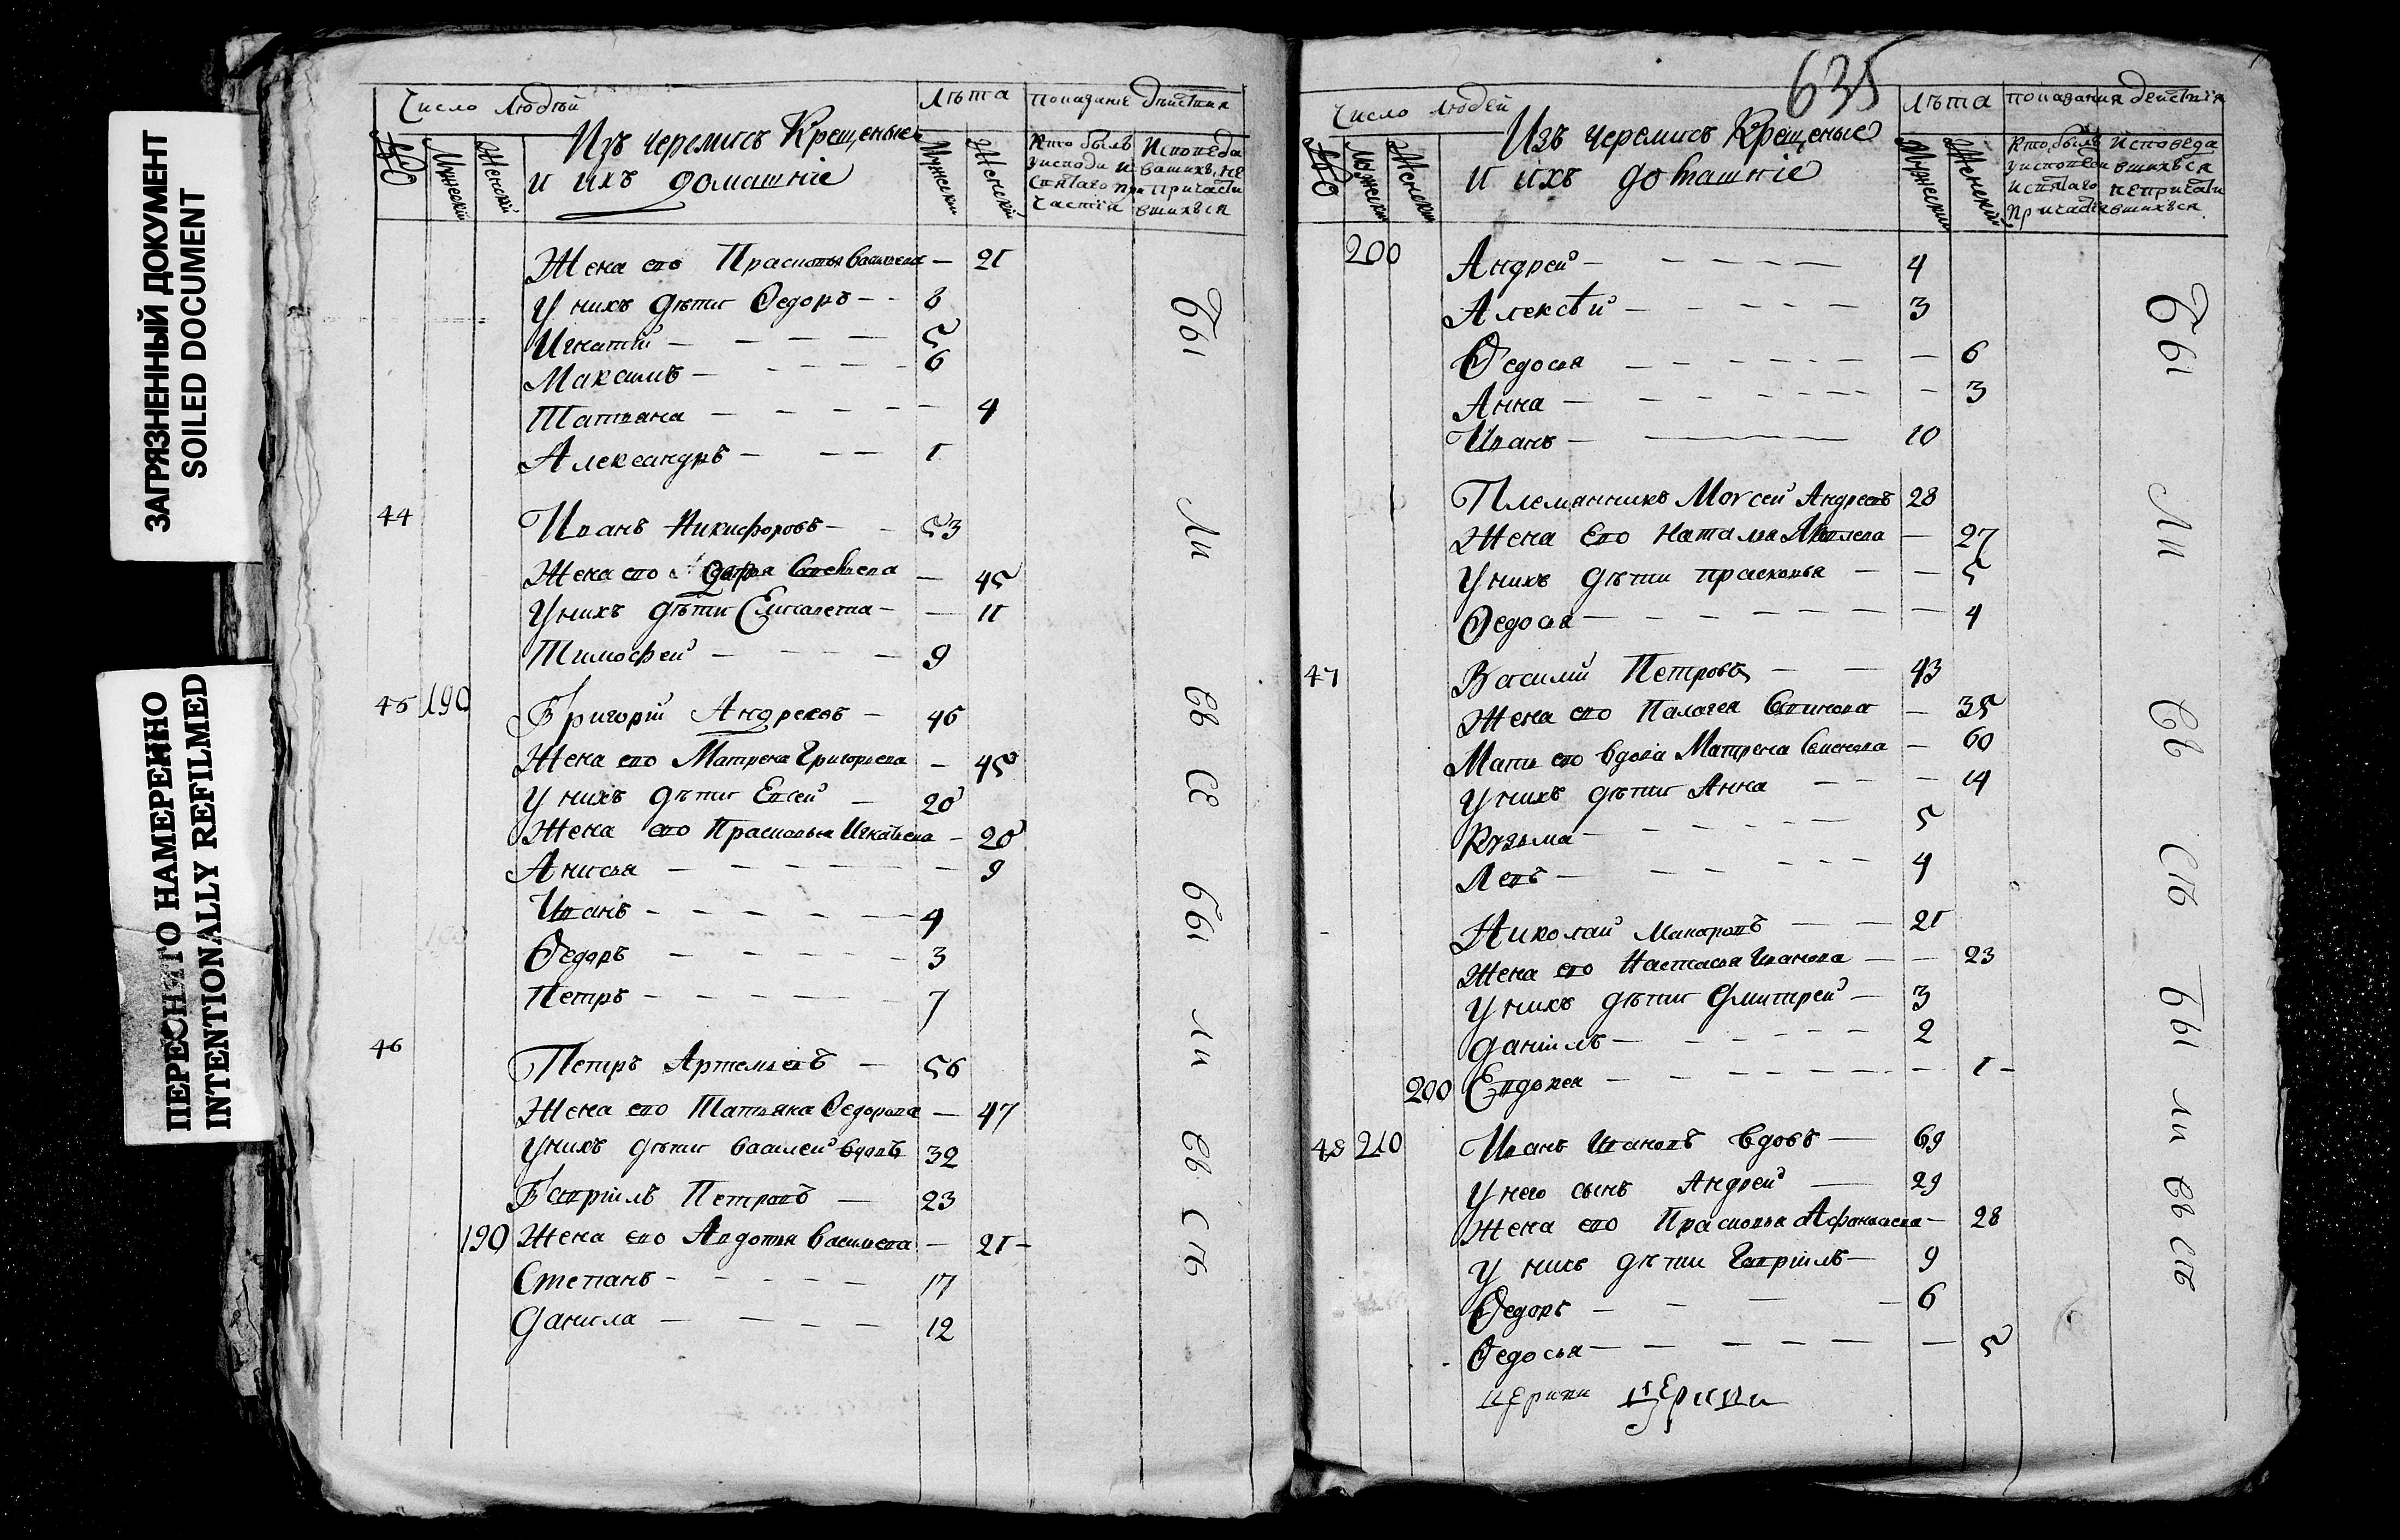 ЗАГРЯЗНЕННЫЙ ДОКУМЕНТ
SOILED DOCUMENT
ПЕРЕСНЯТО НАМЕРЕННО
INTENTIONALLY REFILMED
Число людѣй
Изъ черемисъ Крещеные
и ихъ домашніе
Мужескій
Женскій
Лѣта
Мужескій
Женскій
показание дѣиствия
Кто былъ
у исповеди и
святаго при
частия
Исповеда
вшихъ, не
причасти
вшихъся
Жена его Прасковья Васильева — 21
У нихъ дѣти Ѳедоръ — 8
Игнатий — 5
Максимъ — 6
Татьяна — 4
Александръ — 1
44 Иванъ Никифоровъ — 53
Жена его — 45
У нихъ дѣти Елисавета — 11
Тимофей — 9
45 190 Григорій Андреевъ — 46
Жена его Матрена Григорьева — 45
У нихъ дѣти Евсей — 20
Жена его Прасковья Игнатьева — 20
Анисья — 9
Иванъ — 4
Ѳедоръ — 3
Петръ — 7
46 Петръ Артемьевъ — 56
Жена его Татьяна Ѳедорова — 47
У нихъ дѣти Василей вдовъ 32
Гавріилъ Петровъ — 23
190 Жена его Авдотья Васильева — 21 —
Степанъ — 17
Данила — 12
Бы
Ли
Съ
бы
ли
спъ
635
Число людей
Изъ черемисъ Крещеные
и ихъ домашніе
Мужески
Женский
Лѣта
Мужески
Женский
показания действія
Кто былъ
у исповеди
и святаго
причастия
исповеда
вшихъся
непричасти
вшихъся.
200 Андрей — 4
Алексѣй — 3
Ѳедосья — 6
Анна — 3
Иванъ — 10
Племянникъ Моисей Андреевъ 28
Жена Его Наталья — 27
У нихъ дѣти прасковья — 5
Ѳедосья — 4
47 Василий Петровъ — 43
Жена его Палагея — 35
Мать его вдова Матрена Семенова — 60
У нихъ дѣти Анна — 14
Кузьма — 5
Левъ — 4
Николай Макаровъ — 21
Жена его Настасья Иванова — 23
У нихъ дѣти Дмитрей — 3
Даніилъ — 2
200 Евдокея — 1 —
48 210 Иванъ Ивановъ вдовъ — 69
У него сынъ Андрей — 29
Жена его Прасковья Афанасьева — 28
У нихъ дѣти Гавріилъ — 9
Ѳедоръ — 6
Ѳедосья — 5
церкви церкви
Бы
Ли
бы
ли